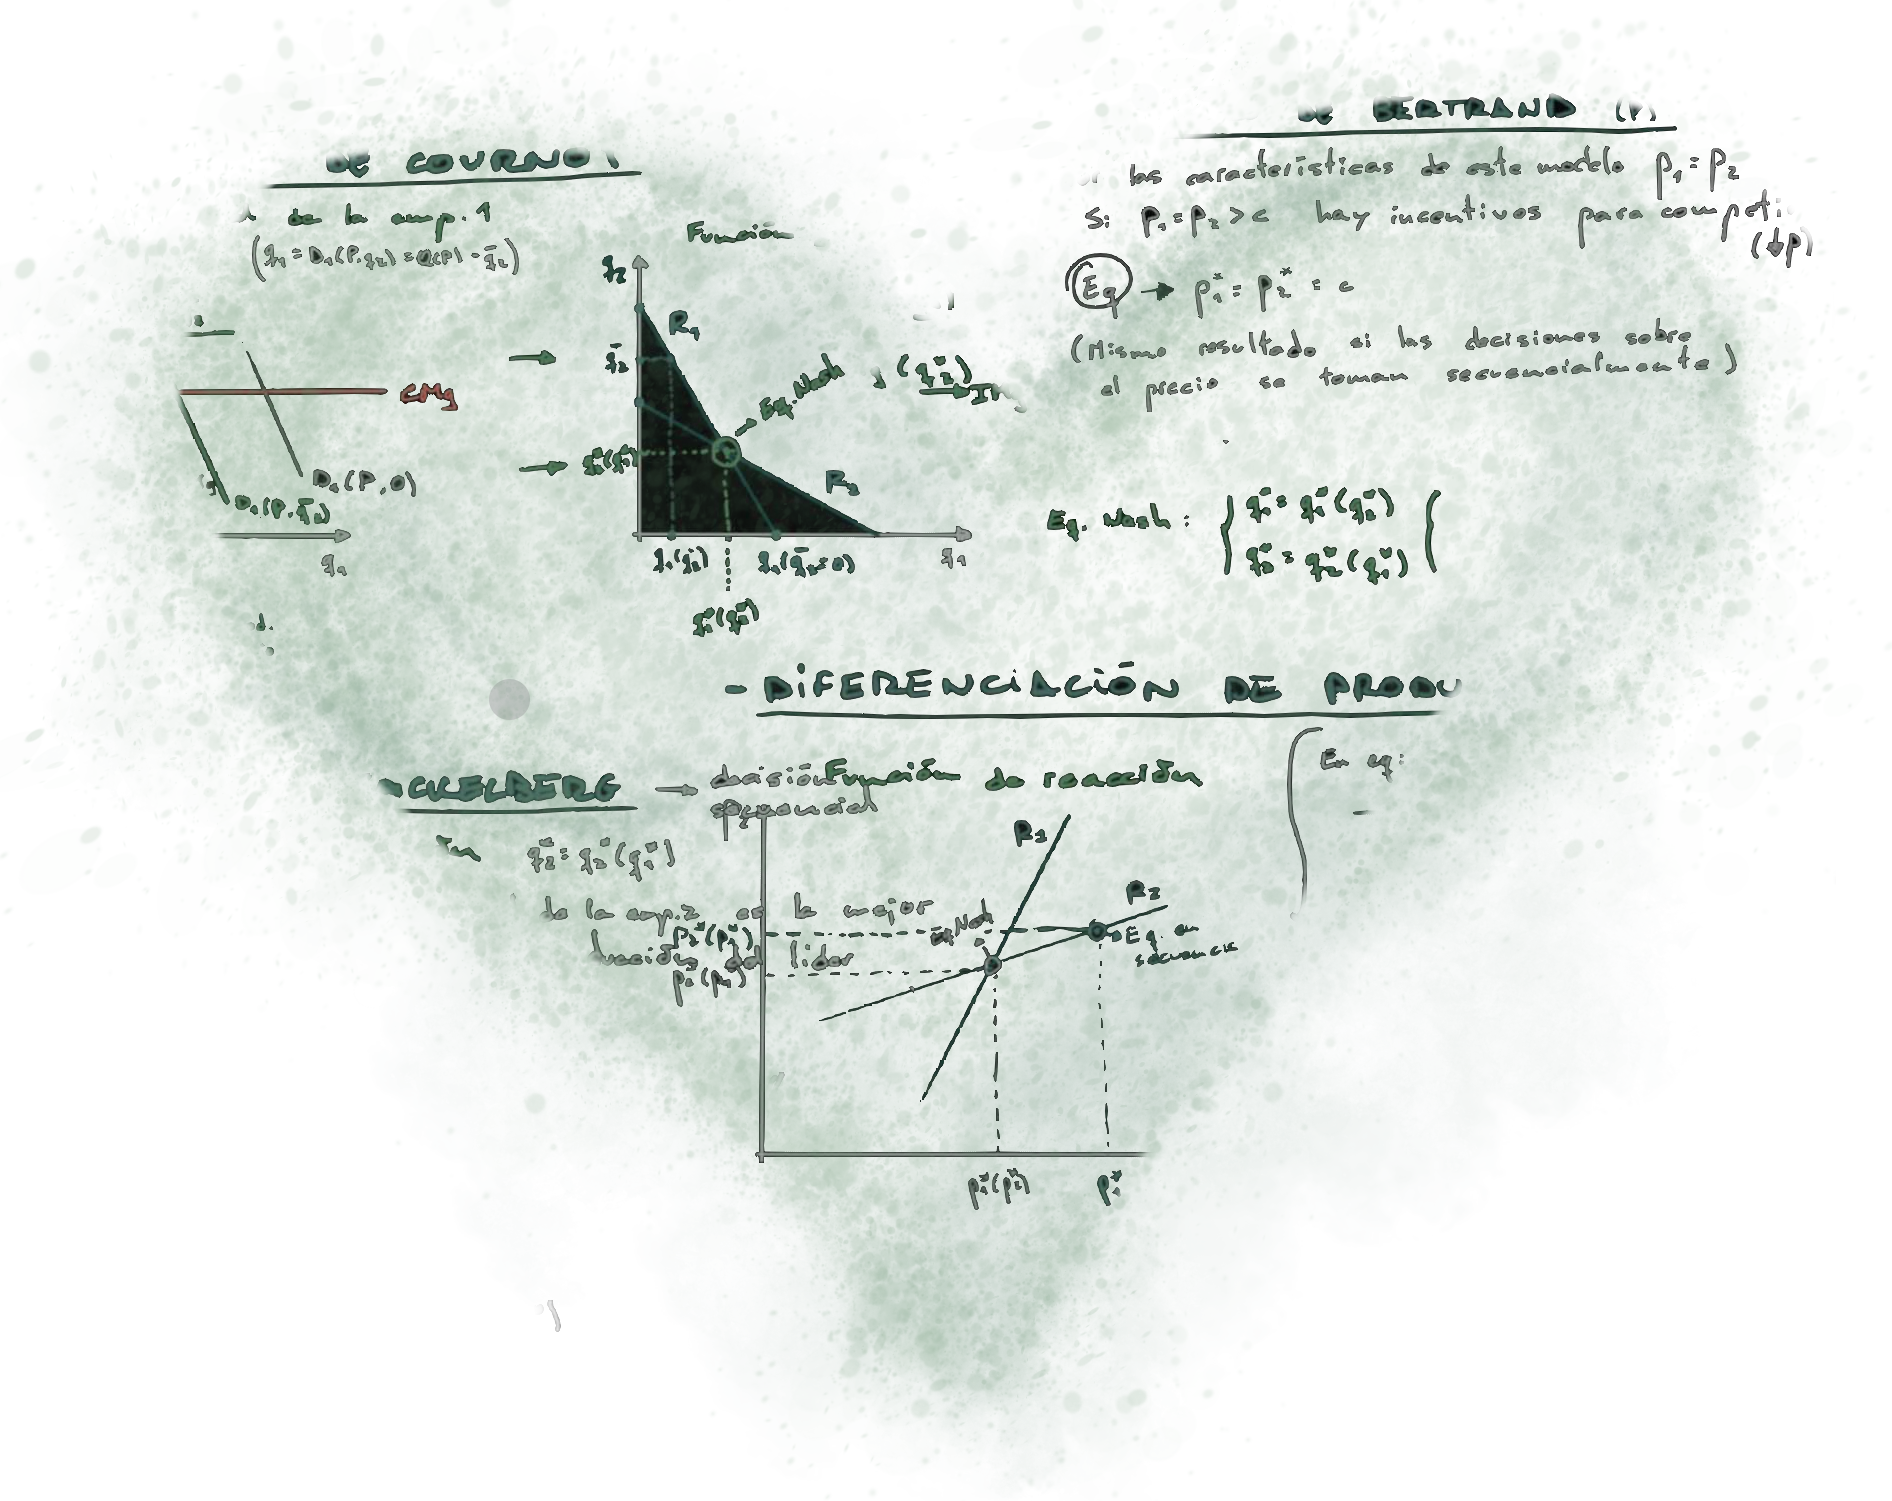 DE COURNOT
de la emp. 1
(q₁ = D₁(P, q₂) = Q(P) - q̄₂)
CMg
D₁(P, 0)
D₁(P, q̄₂)
q₁
Función
q₂
R₁
q̄₂
Eq. Nash
R₂
q₁(q̄₂)
q₁(q̄₂=0)
q₁
q₁*(q₂*)
DE BERTRAND (P)
las características de este modelo p₁ = p₂
Si p₁ = p₂ > c hay incentivos para competi
(↓p)
Eq → p₁* = p₂* = c
(Mismo resultado si las decisiones sobre
el precio se toman secuencialmente)
Eq. Nash : { q₁* = q₁*(q₂*)
q₂* = q₂*(q₁*)
- DIFERENCIACIÓN DE PRODU
CKELBERG → decisión
secuencial
q₂* = q₂*(q₁*)
de la emp. 2 es la mejor
del líder
Función de reacción
R₁
R₂
p₂*(p₁*)
p₂*(p₁*)
Eq. Nash
Eq. en
secuencia
p₁*(p₂*)
p₁*
En eq: